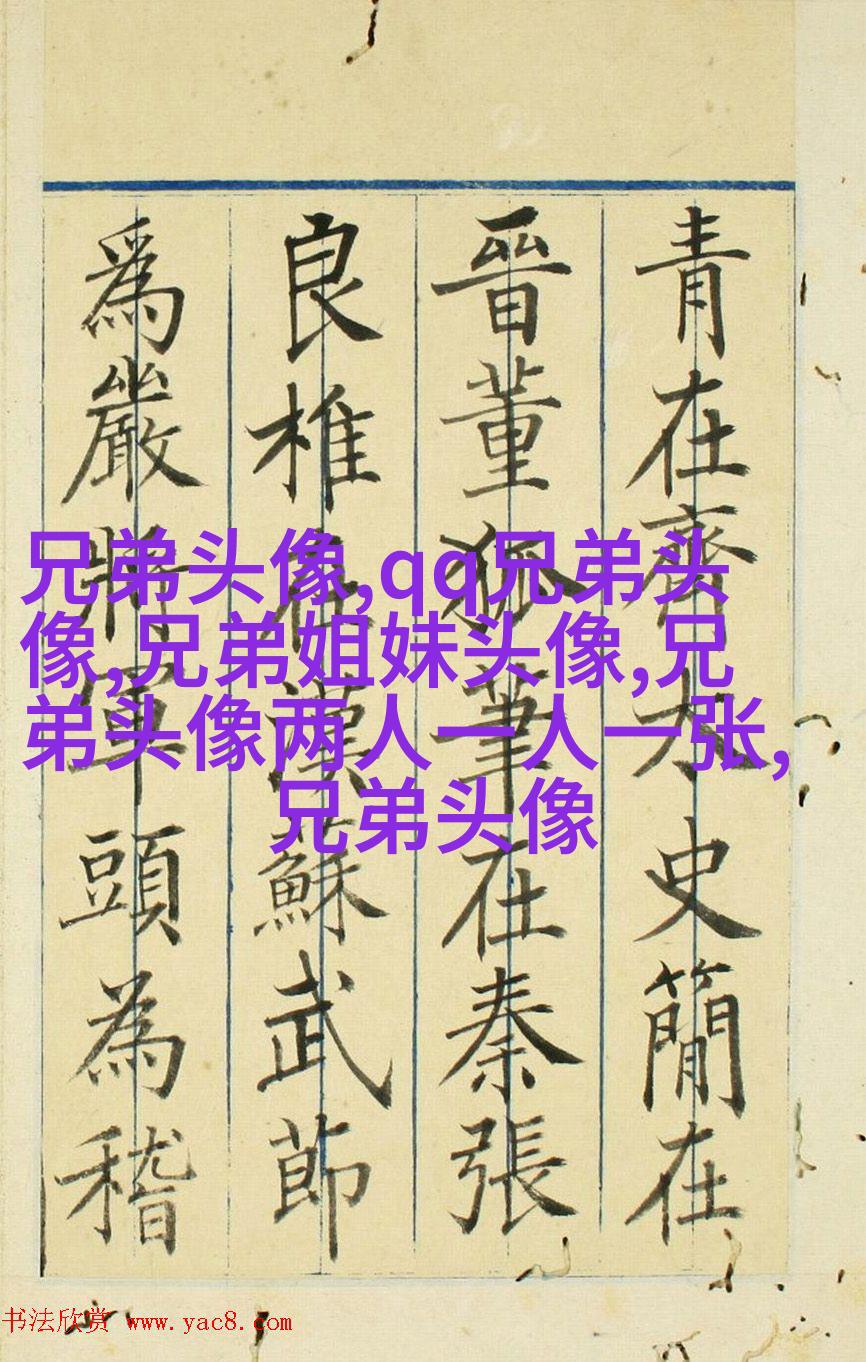 青在齊太史簡在
晉董狐筆在秦張
良椎在漢蘇武節
爲嚴將軍頭為稽
兄弟头像,qq兄弟头
像,兄弟姐妹头像,兄
弟头像两人一人一张,
兄弟头像
书法欣赏 www.yac8.com